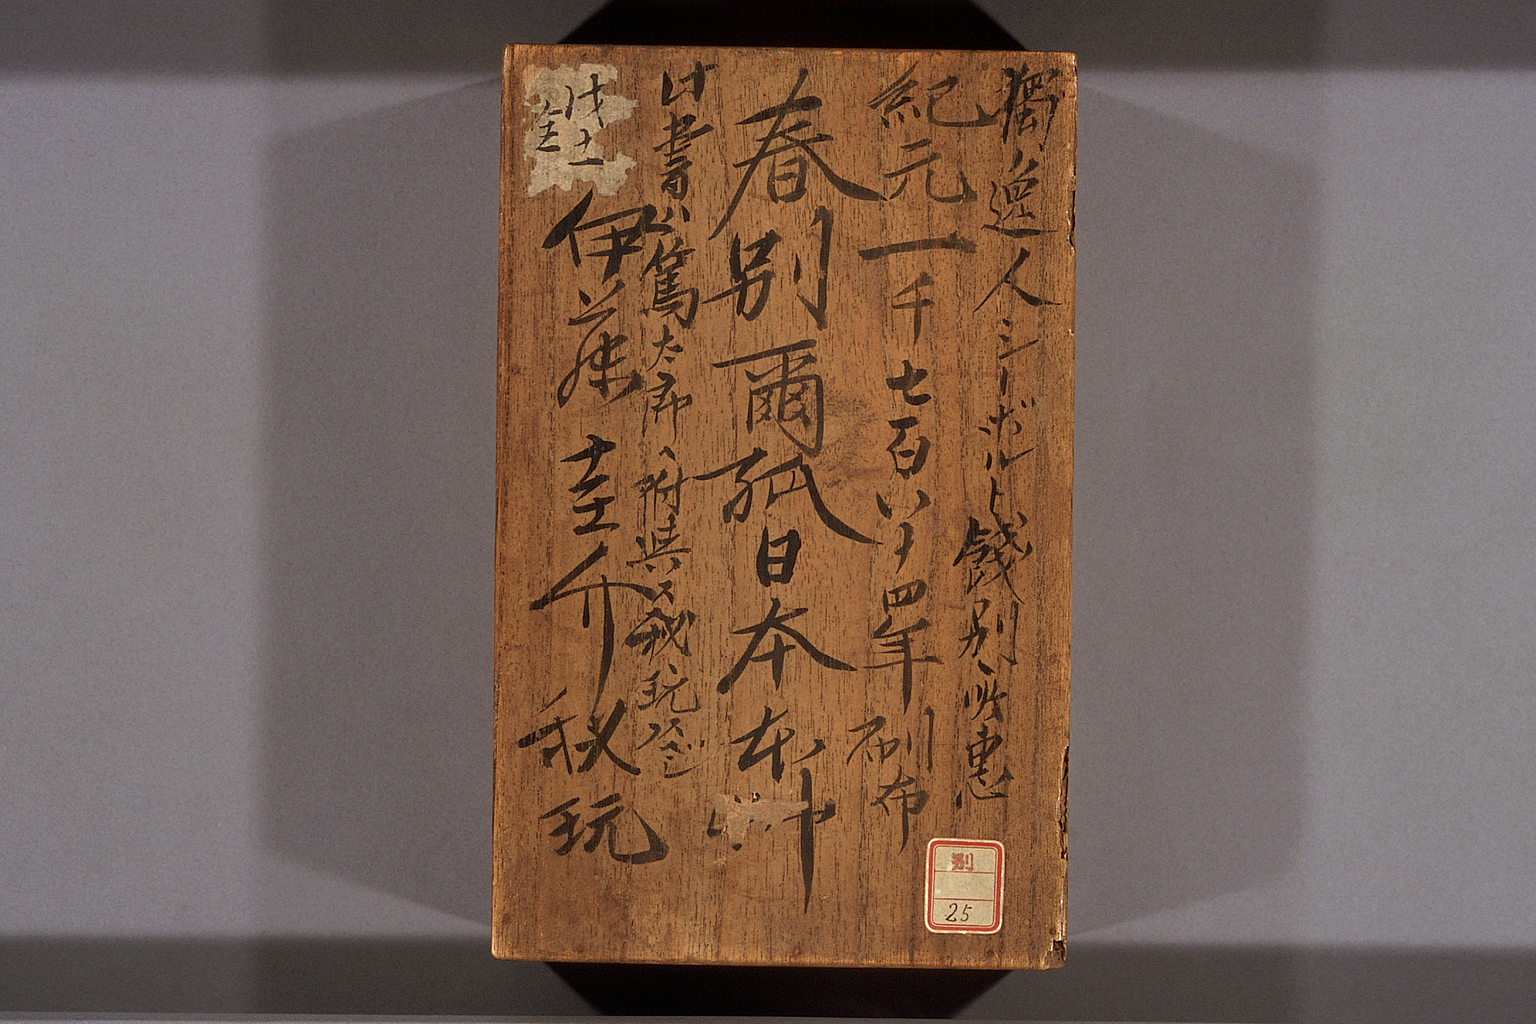 獨逸人シーボルト餞別ノ時惠
紀元一千七百八十四年刷布
春別爾孤日本本艸
此書ハ篤太郎ヘ附與ス我ヽ玩
伊藤圭介秘玩
別
25